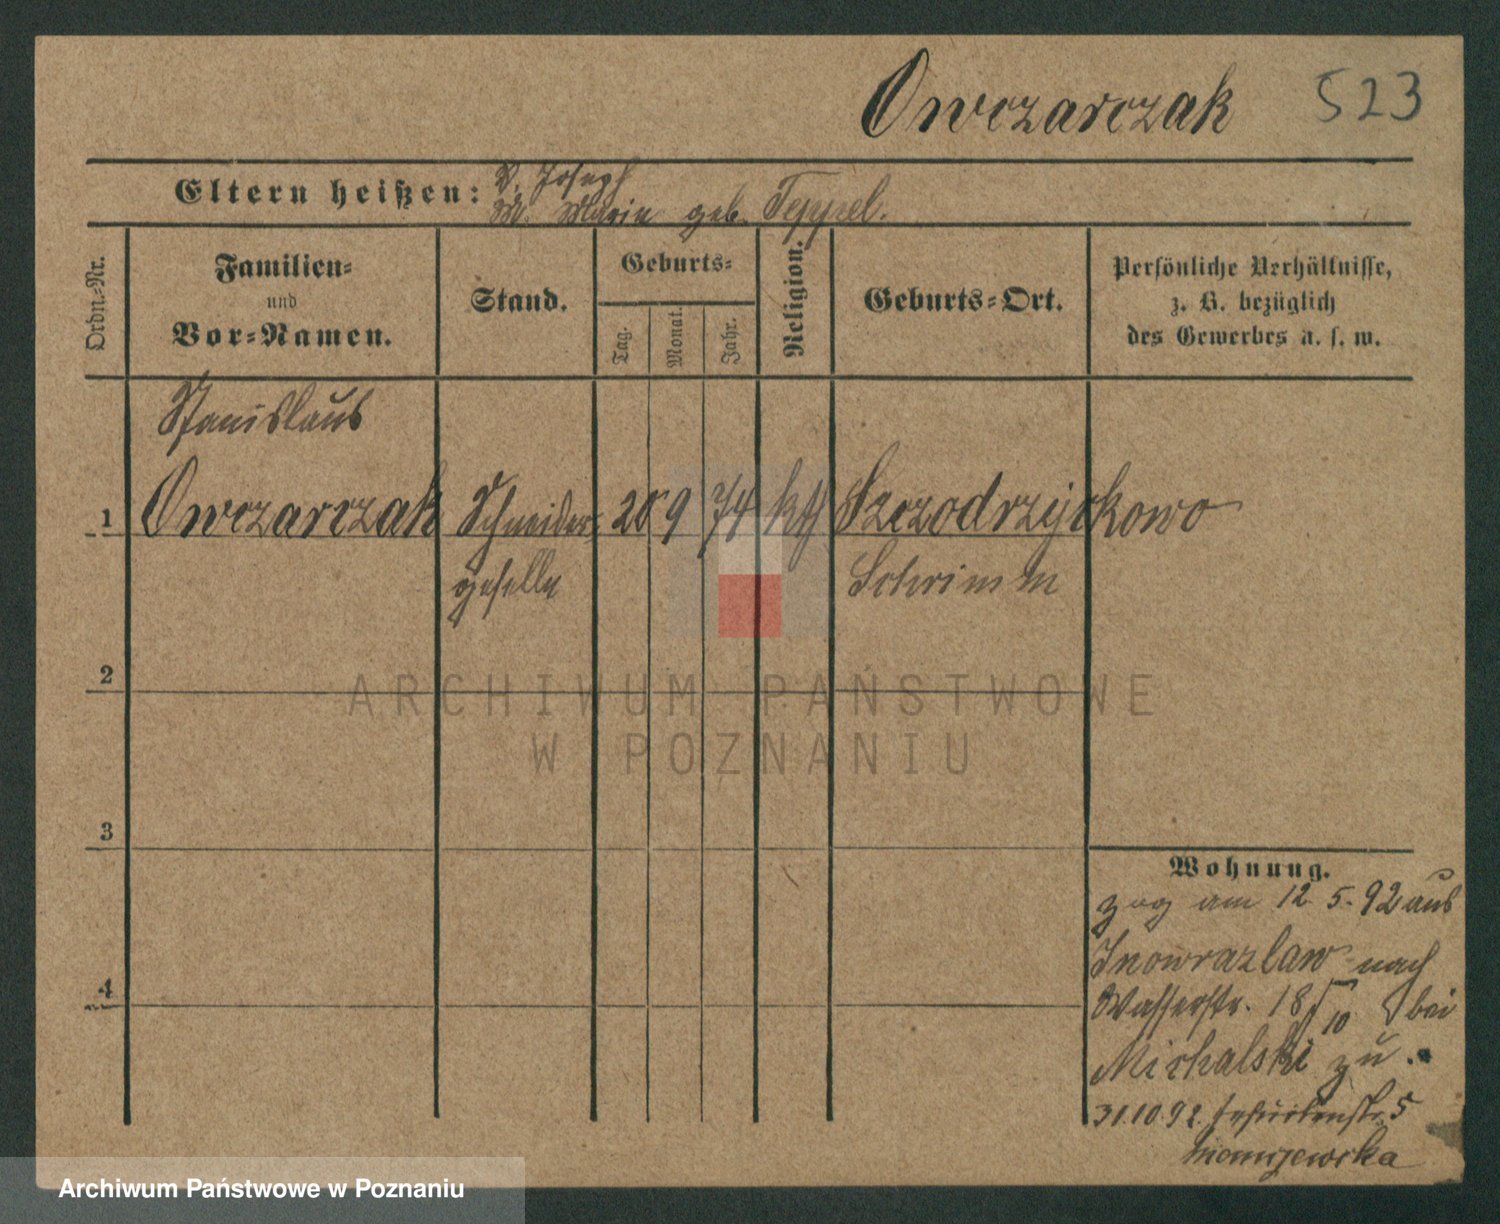 Owczarczak 523
Eltern heißen: V. Joseph
M. Marie geb. Teppel.
Ordn.-Nr.
Familien-
und
Vor-Namen.
Stand.
Geburts-
Tag.
Monat.
Jahr.
Religion.
Geburts-Ort.
Persönliche Verhältnisse,
z. B. bezüglich
des Gewerbes u. s. w.
Stanislaus
1 Owczarczak Schneider- 20 9 74 kth Szczodrzyckowo
geselle Schrimm
2
ARCHIWUM PAŃSTWOWE
W POZNANIU
3
Wohnung.
zog am 12. 5. 92 aus
Inowrazlaw nach
4
Wasserstr. 18/10 bei
Michalski zu.
31.10.92. 5
Archiwum Państwowe w Poznaniu